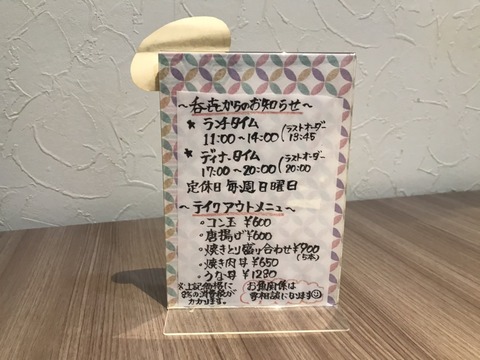 ～呑㐂からのお知らせ～
★ ランチタイム
11:00～14:00 (ラストオーダー 13:45
★ ディナータイム
17:00～20:00 (ラストオーダー 20:00
定休日 毎週日曜日
～テイクアウトメニュー～
・コン玉 ¥600
・唐揚げ ¥600
・焼きとり盛り合わせ ¥700
(5本)
・焼き肉丼 ¥650
・うな丼 ¥1280
※上記価格に
8%の消費税が
かかります。
お魚関係は
要相談になります